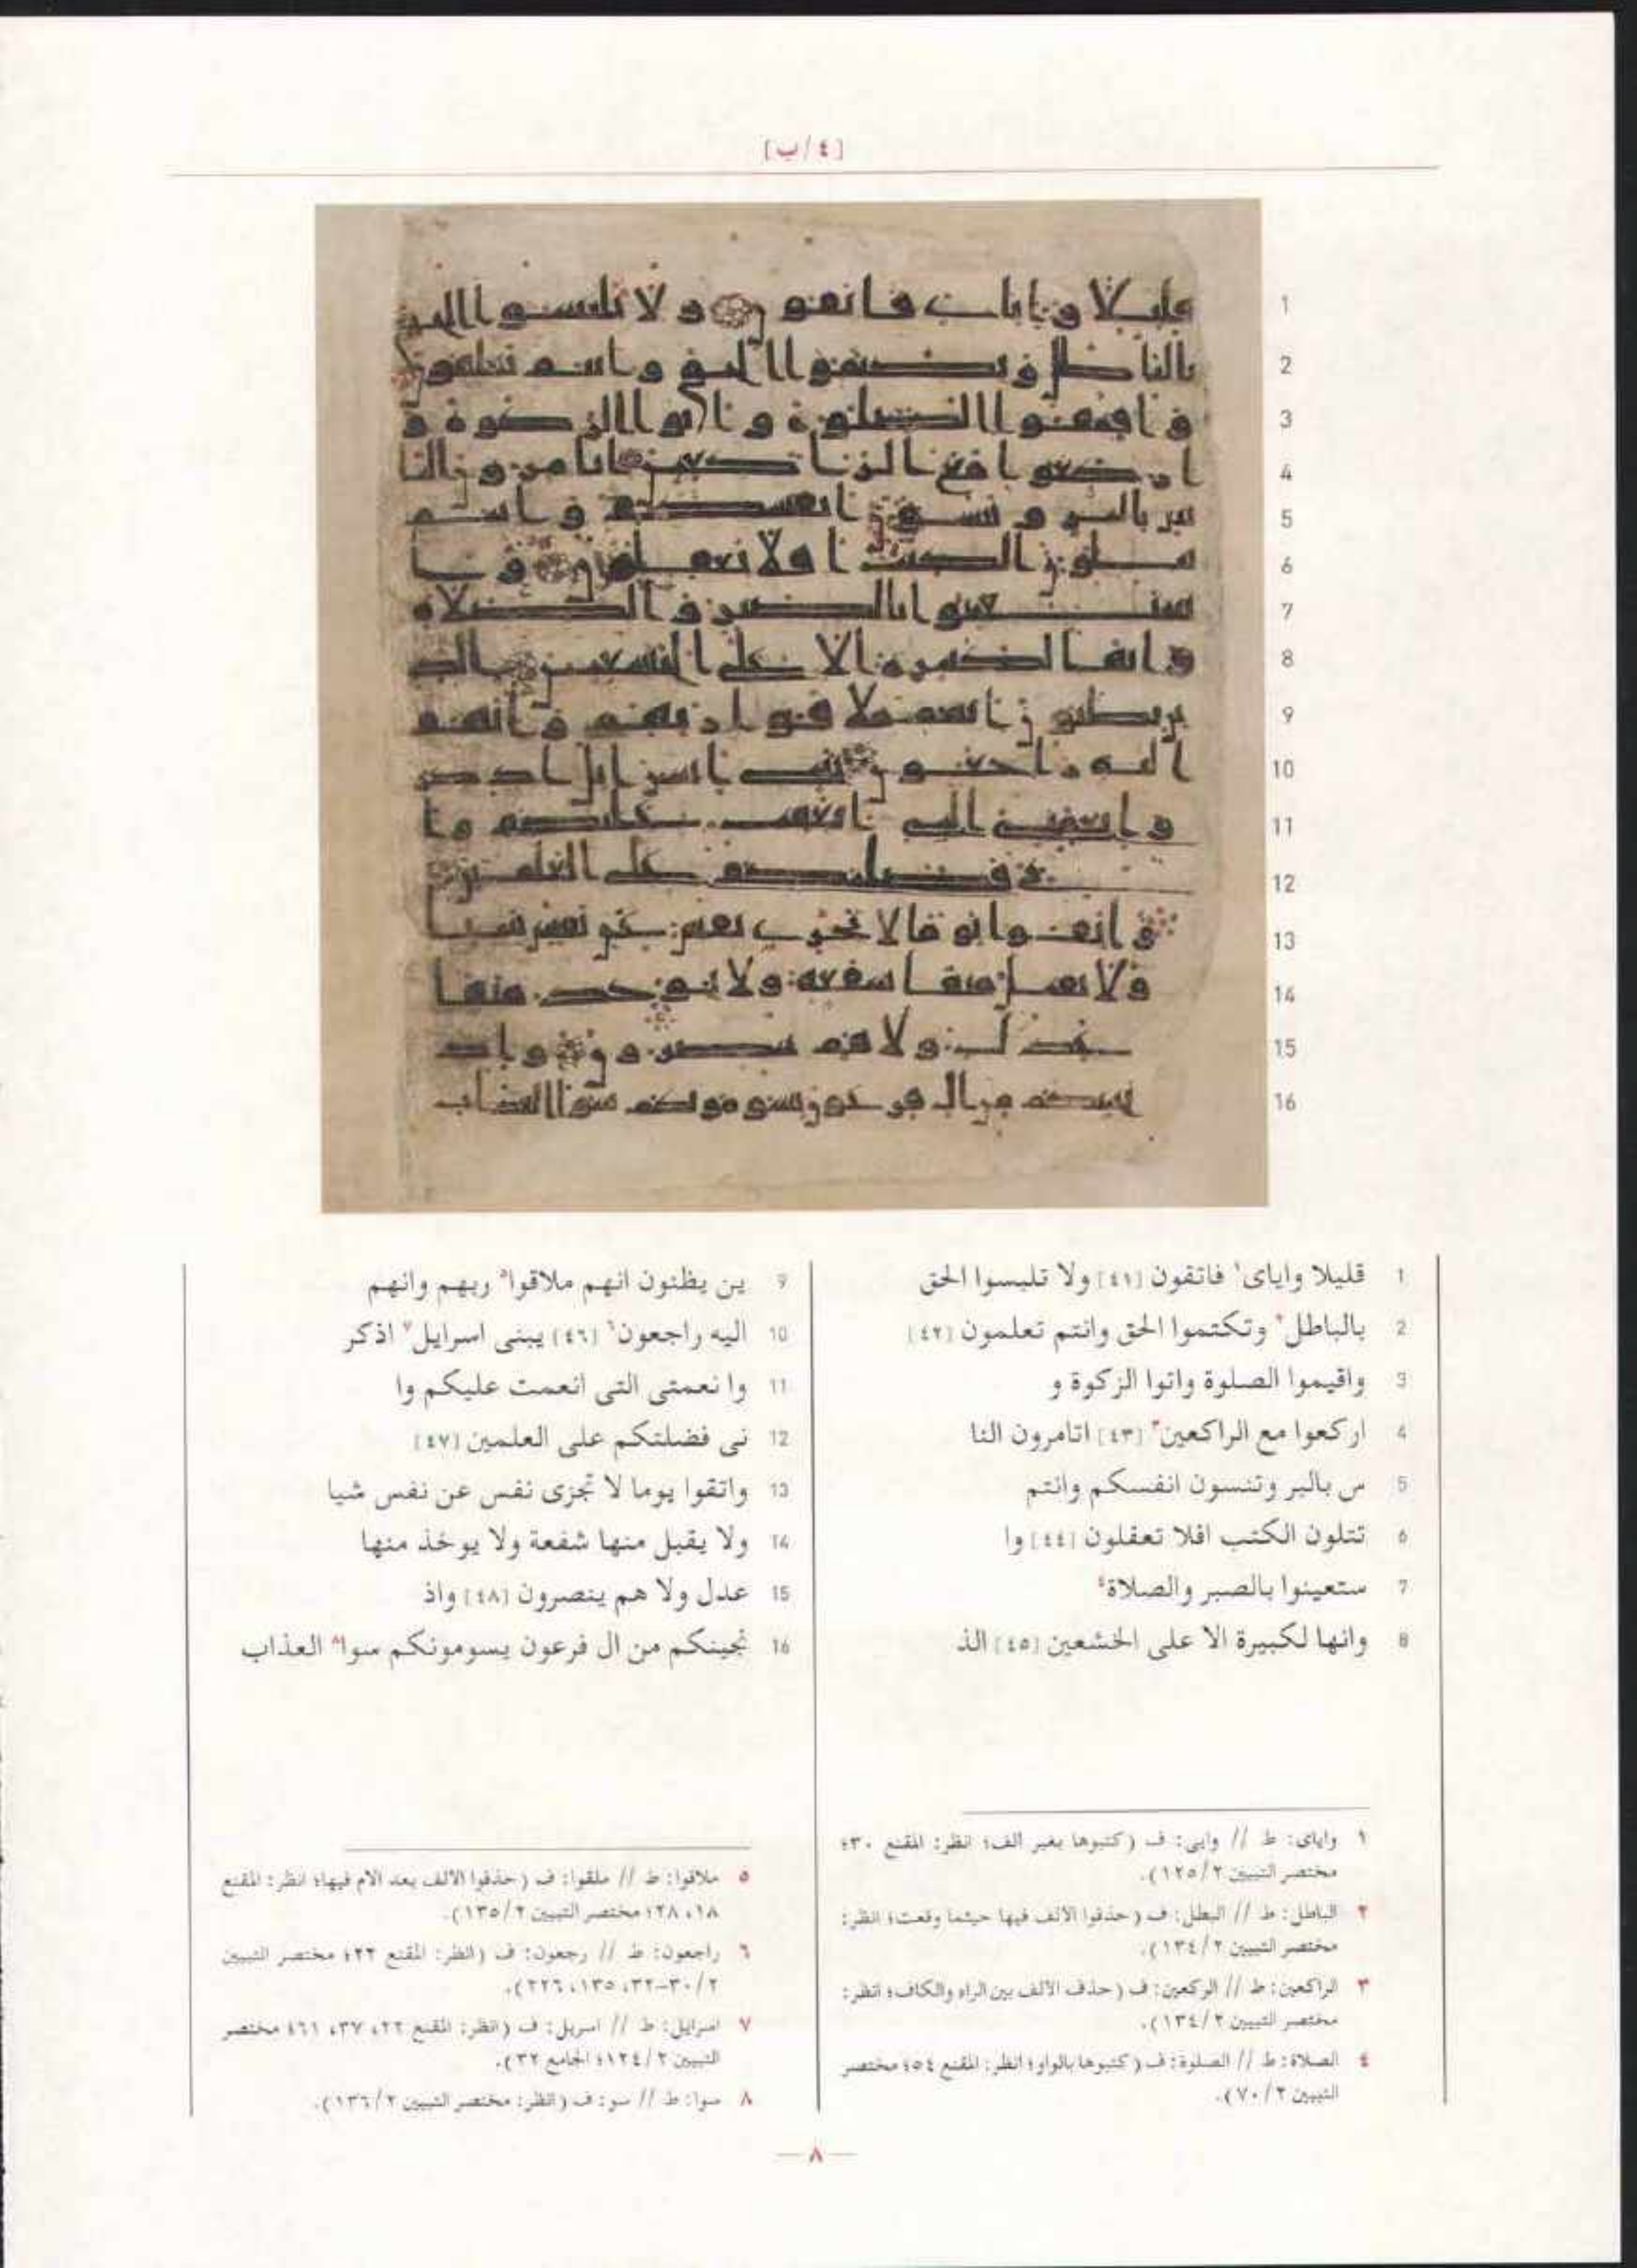 [٤/ب]
1
2
3
4
5
6
7
8
9
10
11
12
13
14
15
16
1 قليلا واياى١ فاتقون [٤١] ولا تلبسوا الحق
2 بالباطل٢ وتكتموا الحق وانتم تعلمون [٤٢]
3 واقيموا الصلوة واتوا الزكوة و
4 اركعوا مع الراكعين٣ [٤٣] اتامرون النا
5 س بالبر وتنسون انفسكم وانتم
6 تتلون الكتب افلا تعقلون [٤٤] وا
7 ستعينوا بالصبر والصلاة٤
8 وانها لكبيرة الا على الخشعين [٤٥] الذ
9 ين يظنون انهم ملاقوا٥ ربهم وانهم
10 اليه راجعون٦ [٤٦] يبنى اسرايل٧ اذكر
11 وا نعمتى التى انعمت عليكم وا
12 نى فضلتكم على العلمين [٤٧]
13 واتقوا يوما لا تجزى نفس عن نفس شيا
14 ولا يقبل منها شفعة ولا يوخذ منها
15 عدل ولا هم ينصرون [٤٨] واذ
16 نجينكم من ال فرعون يسومونكم سوا٨ العذاب
١ واياى: ط // وايى: ف (كتبوها بغير الف؛ انظر: المقنع ٣٠؛
مختصر التبيين ٢/١٢٥).
٢ الباطل: ط // البطل: ف (حذفوا الالف فيها حيثما وقعت؛ انظر:
مختصر التبيين ٢/١٣٤).
٣ الراكعين: ط // الركعين: ف (حذف الالف بين الراء والكاف؛ انظر:
مختصر التبيين ٢/١٣٤).
٤ الصلاة: ط // الصلوة: ف (كتبوها بالواو؛ انظر: المقنع ٥٤؛ مختصر
التبيين ٢/٧٠).
٥ ملاقوا: ط // ملقوا: ف (حذفوا الالف بعد الام فيها؛ انظر: المقنع
١٨، ٢٨؛ مختصر التبيين ٢/١٣٥).
٦ راجعون: ط // رجعون: ف (انظر: المقنع ٢٢؛ مختصر التبيين
٢/٣٠-٣٢، ١٣٥، ٢٢٦).
٧ اسرايل: ط // اسريل: ف (انظر: المقنع ٢٢، ٣٧، ٦١؛ مختصر
التبيين ٢/١٢٤؛ الجامع ٣٢).
٨ سوا: ط // سو: ف (انظر: مختصر التبيين ٢/١٣٦).
— ٨ —